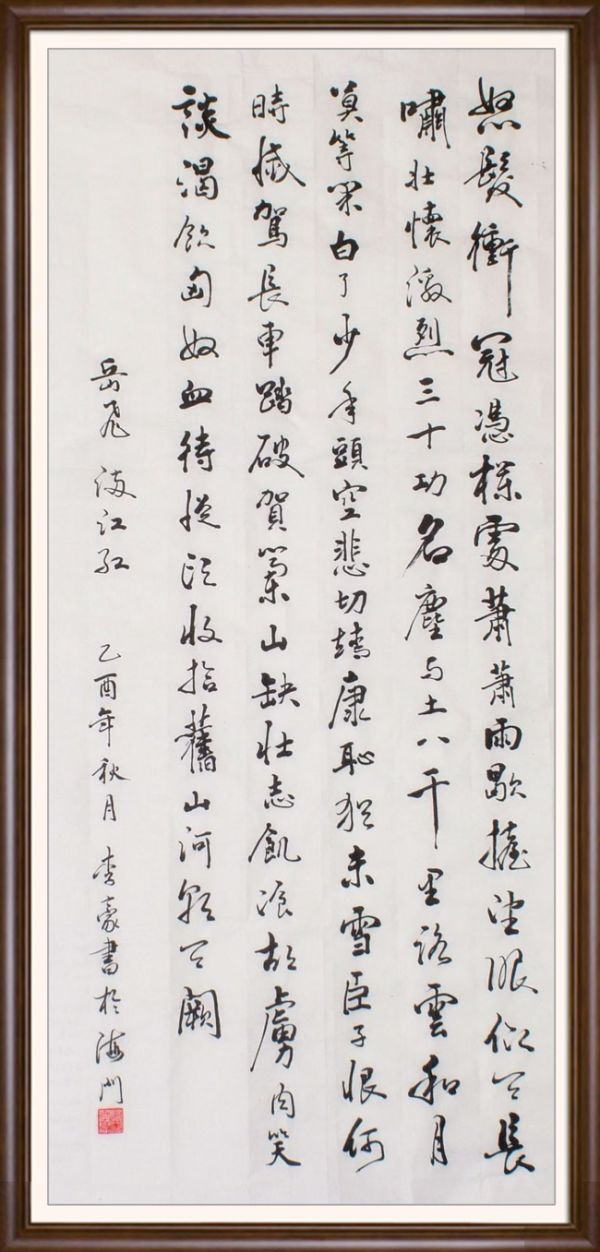 怒髮衝冠憑欄處蕭蕭雨歇擡望眼仰天長
嘯壯懷激烈三十功名塵与土八千里路雲和月
莫等閑白了少年頭空悲切靖康恥猶未雪臣子恨何
時滅駕長車踏破賀蘭山缺壯志飢飡胡虜肉笑
談渴飲匈奴血待從頭收拾舊山河朝天闕
岳飛 滿江紅 乙酉年秋月 李豪書於海門